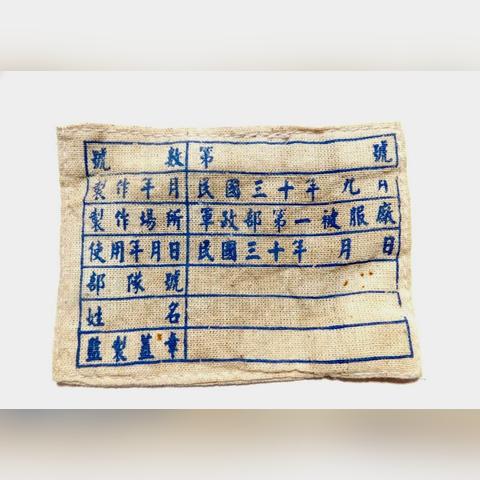 號數 第 號
製作年月 民國三十年九月
製作場所 軍政部第一被服廠
使用年月日 民國三十年 月 日
部隊號
姓名
監製蓋章